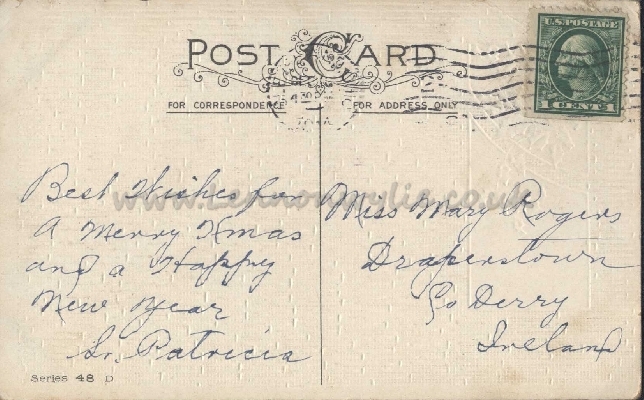 POST CARD
FOR CORRESPONDENCE
FOR ADDRESS ONLY
U.S. POSTAGE
1 CENT 1
4 30 P
Best Wishes for
A Merry Xmas
and a Happy
New Year
Sr. Patricia
Miss Mary Rogers
Draperstown
Co Derry
Ireland
Series 48 D
www.lennonwylie.co.uk